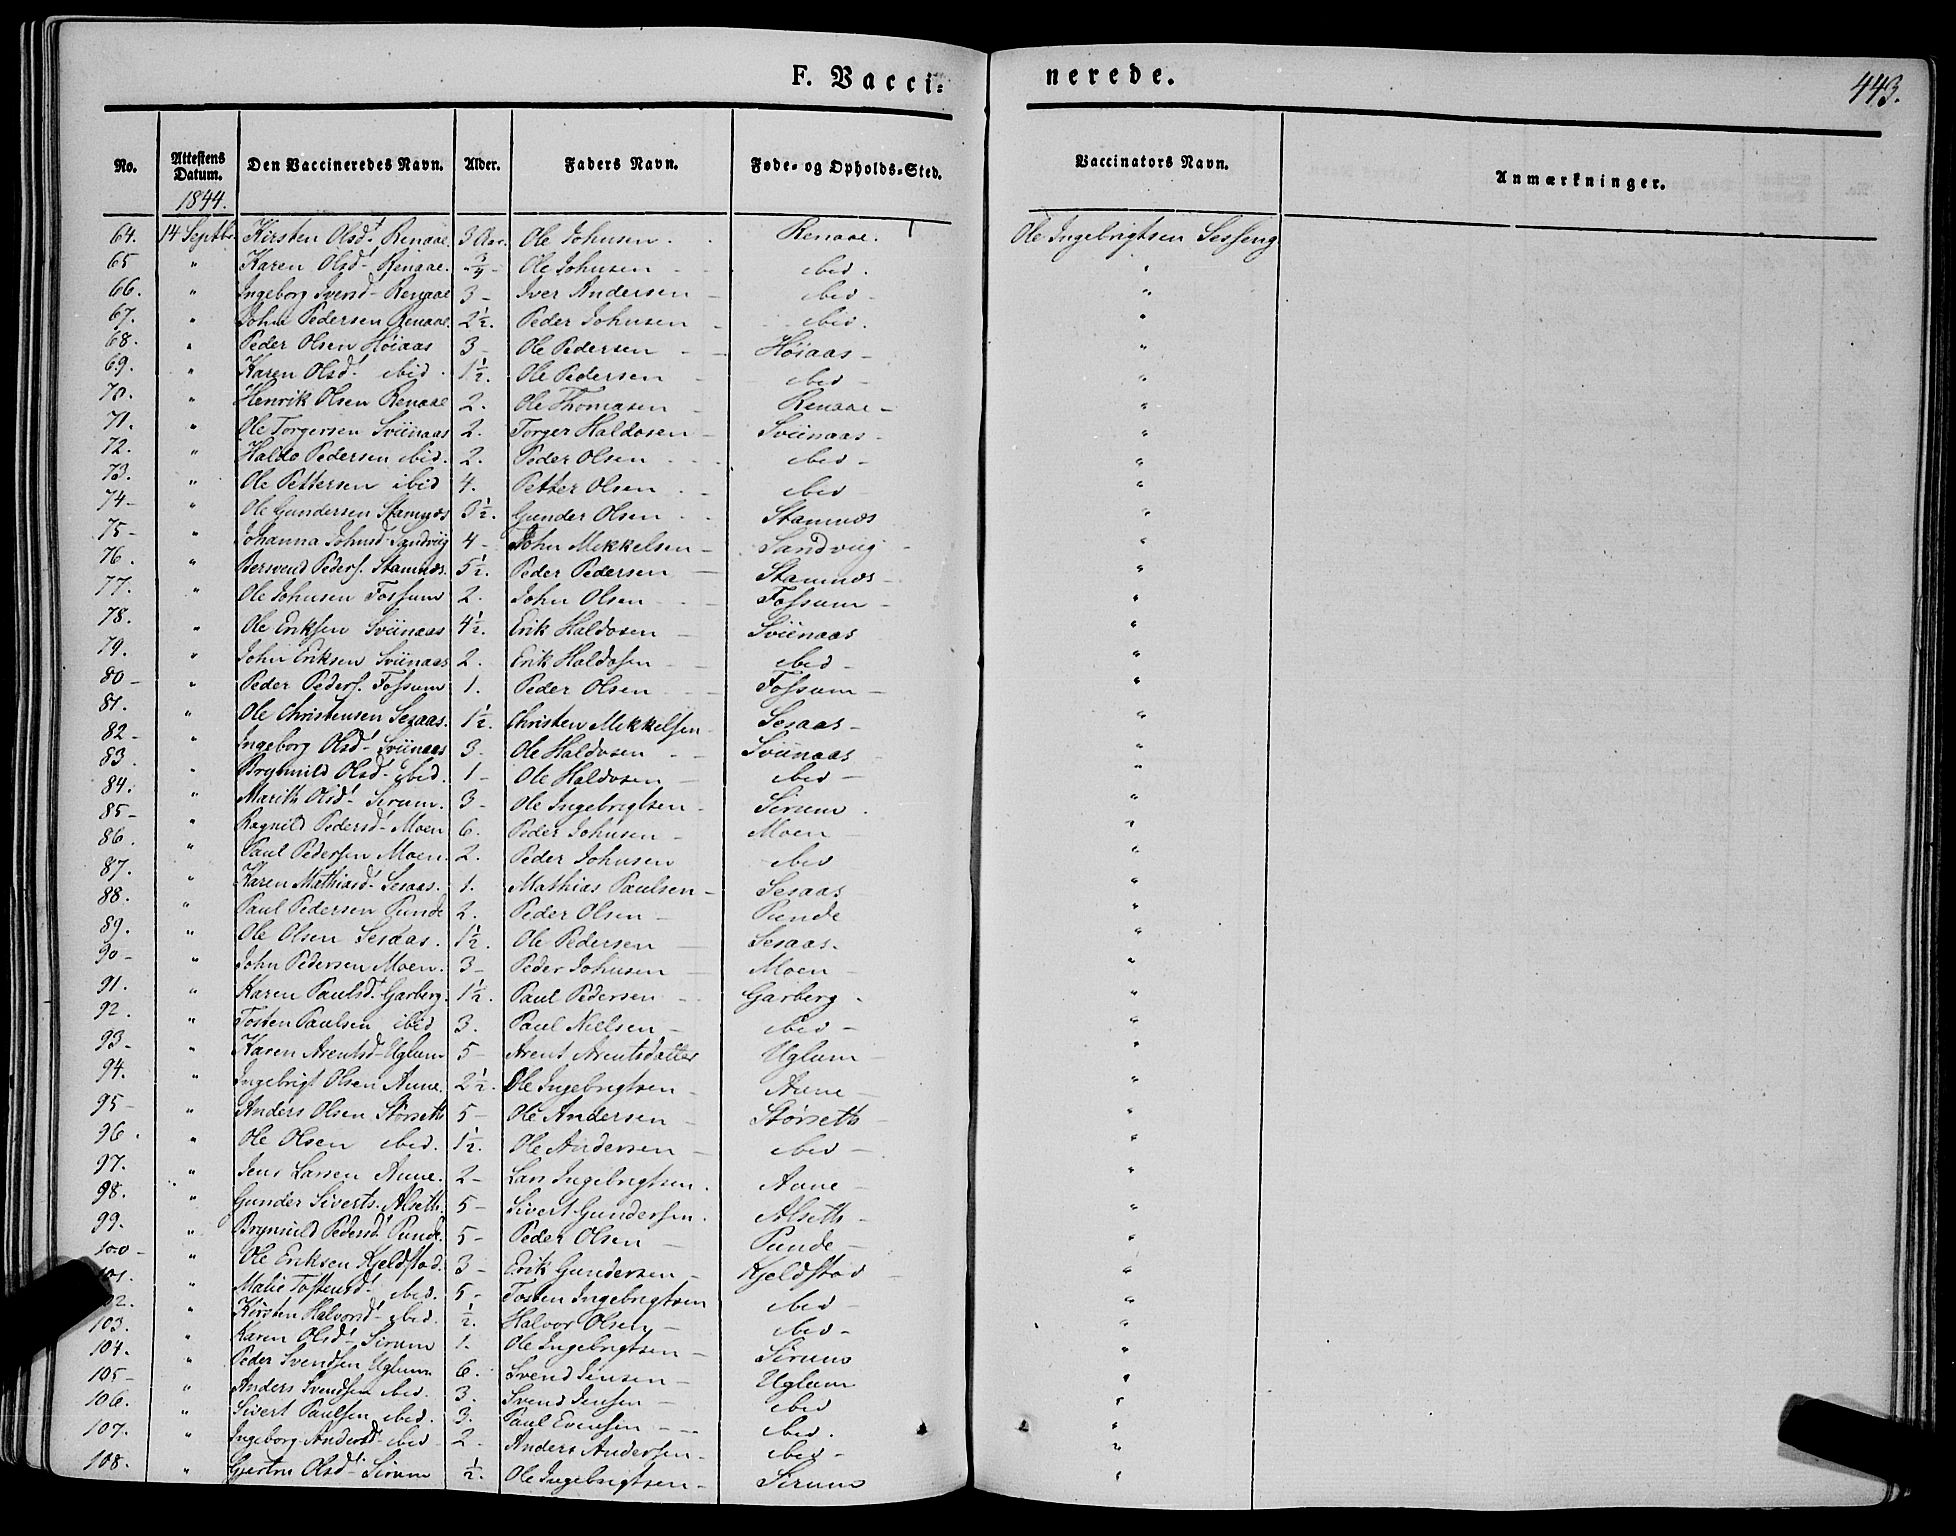 F. Vacci-
nerede.
443.
No. Attestens Datum. Den Vaccineredes Navn. Alder. Faders Navn. Føde- og Opholds-Sted. Vaccinators Navn. Anmærkninger.
1844.
64. 14 Septbr. Kirsten Olsd. Renaae. 3 Aar. Ole Johnsen. Renaae. Ole Ingebrigtsen Sesseng
65 " Karen Olsd. Renaae. 3/4 - Ole Johnsen - ibid. "
66. " Ingeborg Iversd. Renaae 3 - Iver Andersen - ibid - "
67. " John Pedersen Renaae. 2 1/2. Peder Johnsen - ibid. "
68. " Peder Olsen Höiaas 3 - Ole Pedersen - Höiaas - "
69. " Karen Olsd. ibid. 1 1/2. Ole Pedersen - ibid - "
70. " Henrik Olsen Renaae 2. Ole Thomasen - Renaae - "
71. " Ole Torgersen Sviinaas 2. Torger Haldosen - Sviinaas - "
72. " Haldo Pedersen ibid. 2. Peder Olsen - ibid - "
73. " Ole Pettersen ibid 4. Petter Olsen - ibid - "
74 - " Ole Gundersen Stamnæs 3 1/2. Gunder Olsen - Stamnæs "
75 - " Johanna Johnsd. Sandviig 4 - John Mikkelsen - Sandviig - "
76. " Bersvend Peders. Stamnæs. 5 1/2. Peder Pedersen - Stamnæs - "
77. " Ole Johnsen Fossum 2. John Olsen - Fossum - "
78. " Ole Eriksen Sviinaas 4 1/2. Erik Haldosen - Sviinaas "
79. " John Eriksen Sviinaas 2. Erik Haldosen - ibid - "
80 - " Peder Peders. Fossum 1. Peder Olsen - Fossum - "
81. " Ole Christensen Sesaas. 1 1/2. Christen Mikkelsen - Sesaas - "
82 - " Ingeborg Olsd. Sviinaas 3 - Ole Haldosen - Sviinaas "
83. " Brynhild Olsd. ibid. 1 - Ole Haldosen - ibid - "
84. " Marith Olsd. Sirum. 3 - Ole Ingebrigtsen - Sirum. "
85 - " Ragnild Pedersd. Moen 6. Peder Johnsen - Moen "
86. " Paul Pedersen Moen. 2. Peder Johnsen ibid "
87. " Karen Mathiasd. Sesaas. 1. Mathias Paulsen - Sesaas "
88. " Paul Pedersen Punde 2. Peder Olsen - Punde "
89. " Ole Olsen Sesaas. 1 1/2. Ole Pedersen - Sesaas. "
90 - " John Pedersen Moen. 3 - Peder Johnsen - Moen - "
91. " Karen Paulsd. Garberg. 1 1/2. Paul Pedersen - Garberg - "
92. " Tosten Paulsen ibid 3. Paul Nielsen - ibid - "
93 - " Karen Arentsd. Uglum 5 - Arent Arentsdatter Uglum - "
94. " Ingebrigt Olsen Aune. 2 1/2. Ole Ingebrigtsen - Aune - "
95 - " Anders Olsen Störseth 5 - Ole Andersen - Störseth - "
96. " Ole Olsen ibid. 1 1/2. Ole Andersen - ibid - "
97. " Jens Larsen Aune. 2 - Lars Ingebrigtsen. Aune - "
98. " Gunder Siverts. Alseth. 5 - Sivert Gundersen. Alseth - "
99. " Brynhild Pedersd. Punde. 5 - Peder Olsen - Punde - "
100 - " Ole Eriksen Kjeldstad. 3 - Erik Gundersen - Kjeldstad - "
101. " Malie Tostensd. ibid. 5 - Tosten Ingebrigtsen ibid - "
102. " Kirsten Halvorsd. ibid. 1/2. Halvor Olsen - ibid - "
103. " Karen Olsd. Sirum 1. Ole Ingebrigtsen - Sirum "
104. " Peder Svendsen Uglum 6. Svend Jensen - Uglum "
105 - " Anders Svendsen ibid. 3. Svend Jensen - ibid "
106. " Sivert Paulsen ibid. 3. Paul Evensen - ibid. "
107. " Ingeborg Andersd. ibid - 2. Anders Andersen - ibid - "
108. " Gjertru Olsd. Sirum 1/2. Ole Ingebrigtsen - Sirum "